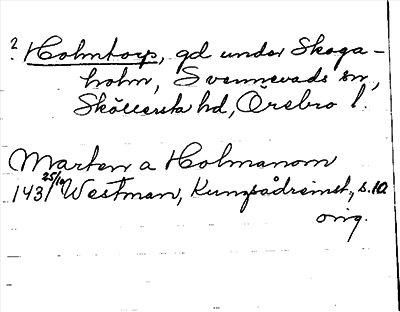 ? Holmtorp, gd under Skoga-
holm, Svennevads sn,
Sköllersta hd, Örebro l.
Marten a Holmanom
1431 25/10 Westman, Kungsådreinst, s. 10
orig.